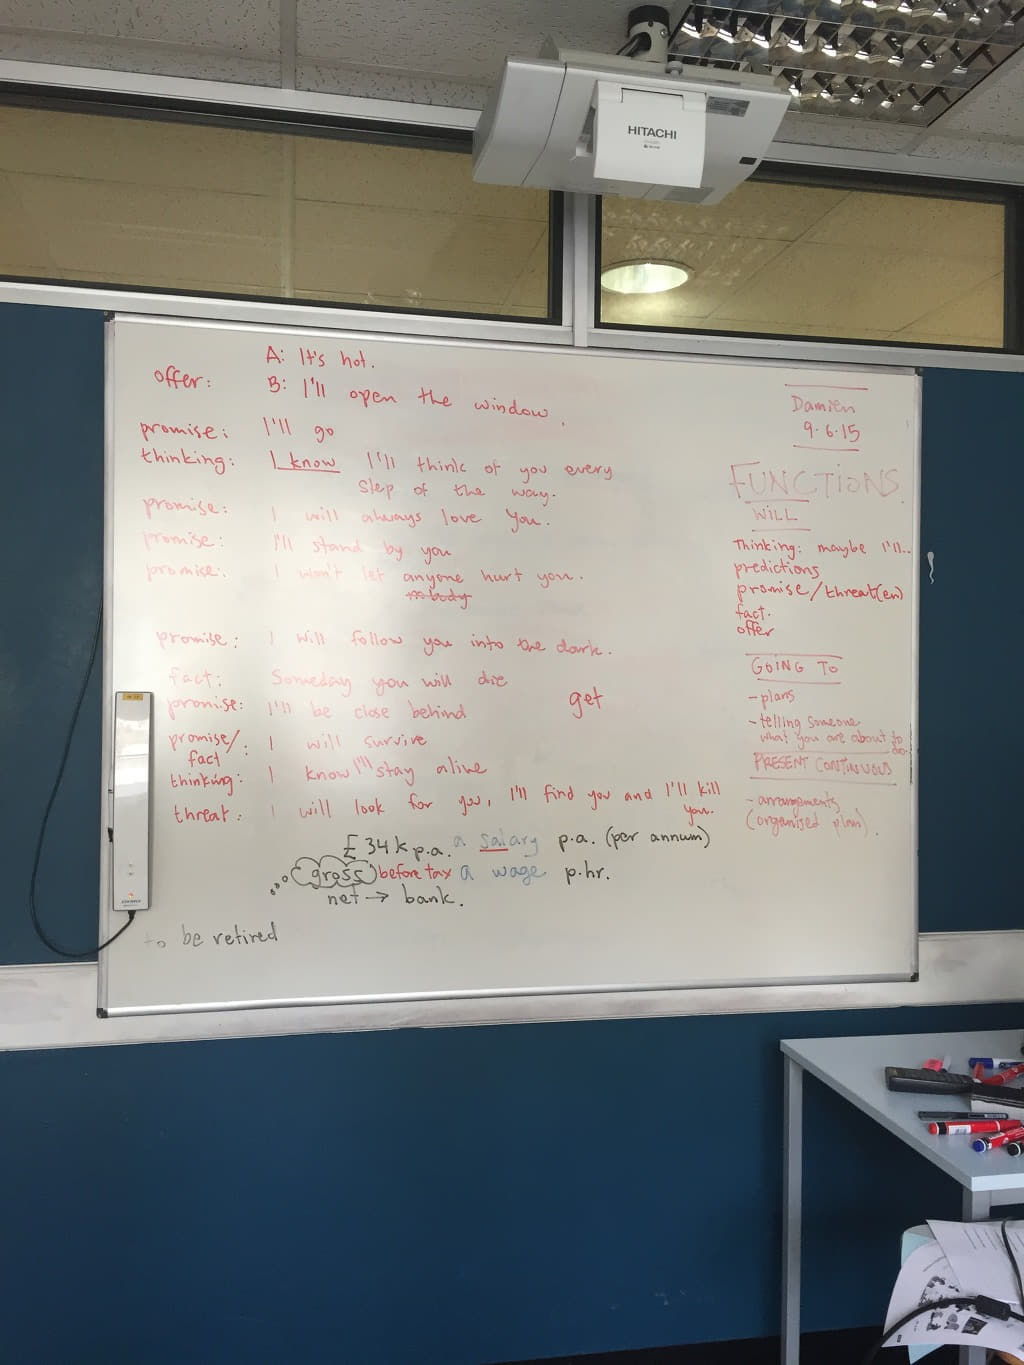 HITACHI
A: It's hot.
offer: B: I'll open the window.
promise: I'll go
thinking: I know I'll think of you every
step of the way.
promise: I will always love you.
promise: I'll stand by you
promise: I won't let anyone hurt you.
nobody
promise: I will follow you into the dark.
fact: Someday you will die
get
promise: I'll be close behind
promise/fact: I will survive
thinking: I know I'll stay alive
threat: I will look for you, I'll find you and I'll kill
you.
£34k p.a. a salary p.a. (per annum)
gross before tax a wage p.hr.
net → bank.
to be retired
Damien
9.6.15
FUNCTIONS
WILL
Thinking: maybe I'll..
predictions
promise/threat(en)
fact.
offer
GOING TO
- plans
- telling someone
what you are about to
do.
PRESENT CONTINUOUS
- arrangements
(organised plan).